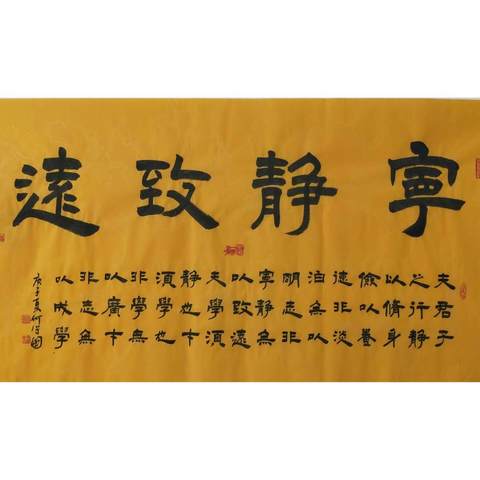 寧静致遠
夫君子
之行静
以脩身
儉以養
德非淡
泊無以
明志非
寧静無
以致遠
夫學須
静也才
須學也
非學無
以廣才
非志無
以成學
庚子夏何